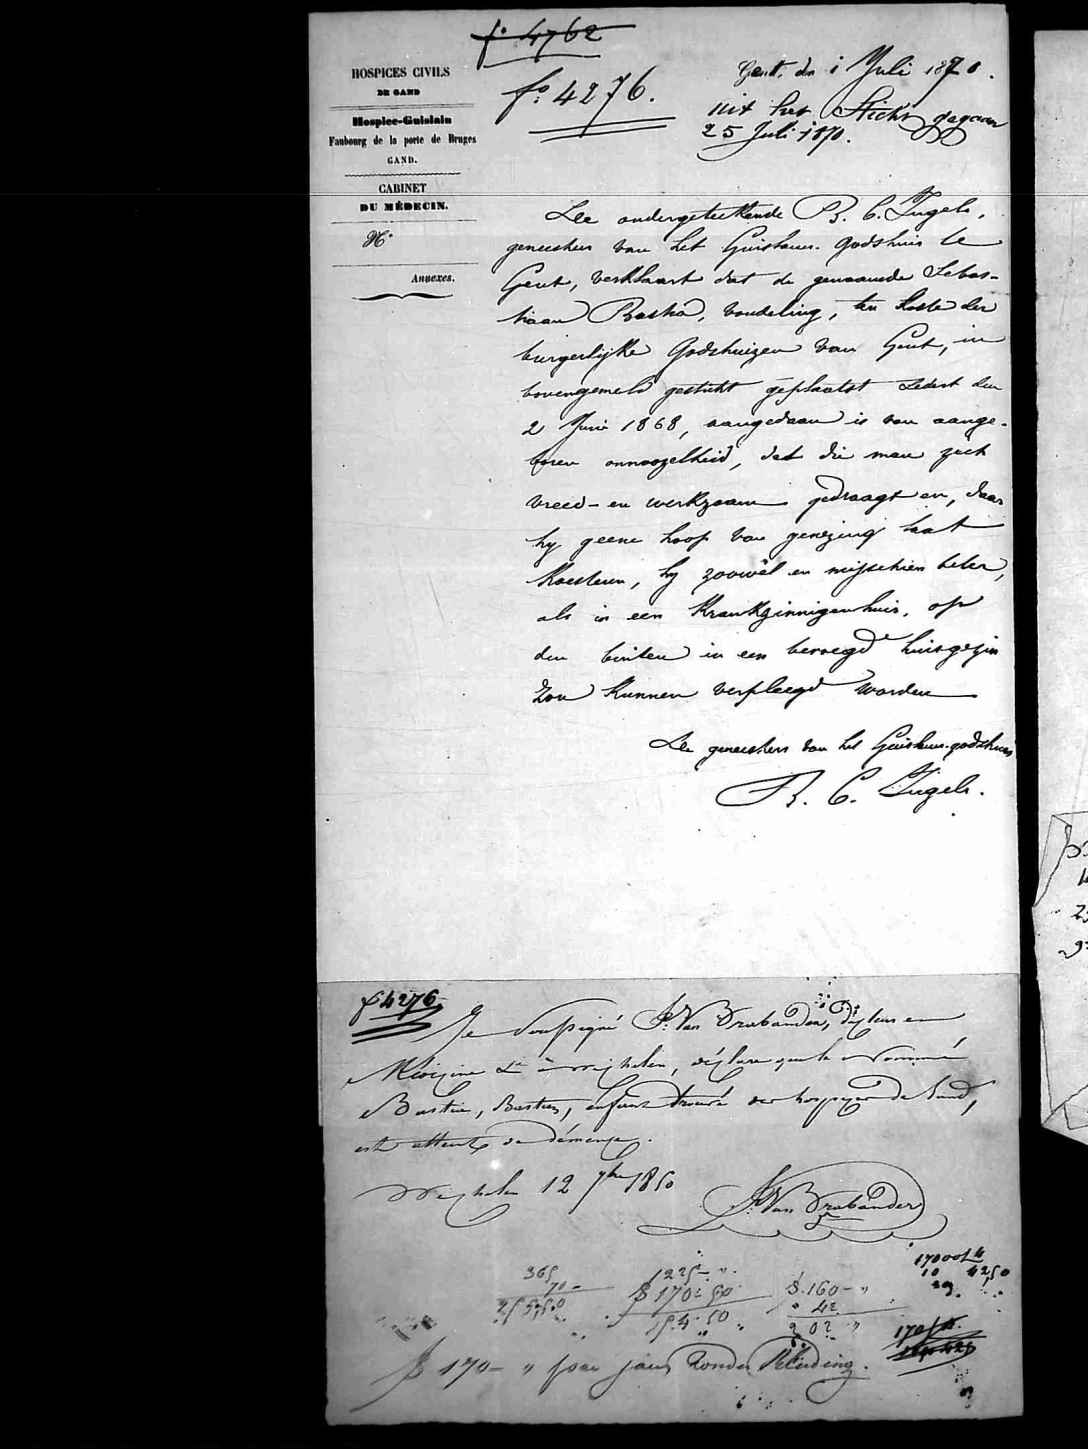 f° 4762
HOSPICES CIVILS
DE GAND
Hospice-Guislain
Faubourg de la porte de Bruges
GAND.
CABINET
DU MÉDECIN.
N°
Annexes.
f° 4276.
Gent, den 1 Juli 1870.
uit het Sticht gegaan
25 Juli 1870.
De ondergeteekende B. C. Ingels,
geneesheer van het Guislain-godshuis te
Gent, verklaart dat de genaamde Sebas-
tiaan Bastia, vondeling, ten koste der
burgerlijke Godshuizen van Gent, in
bovengemeld gesticht geplaatst sedert den
2 Juni 1868, aangedaan is van aange-
boren onnoozelheid, dat die man zich
vreed- en werkzaam gedraagt en, daar
hy geene hoop van genezing laat
koesteren, hy zoowel en misschien beter,
als in een krankzinnigenhuis, op
den buiten in een bevoegd huisgezin
zou kunnen verpleegd worden
De geneesheer van het Guislain-godshuis
B. C. Ingels.
f° 4276
Je soussigné P. Van Brabander, docteur en
Médecine à Wichelen, déclare que le Nommé
Bastia, Bastien, enfant trouvé des hospices de Gand,
est atteint de démence.
Wichelen 12 7bre 1850
Van Brabander
365
70 -
1225 - "
170: 50
154: 50
160 - "
42
202 "
17000 4
10 4250
20
170 - " par jaar zonder kleeding.